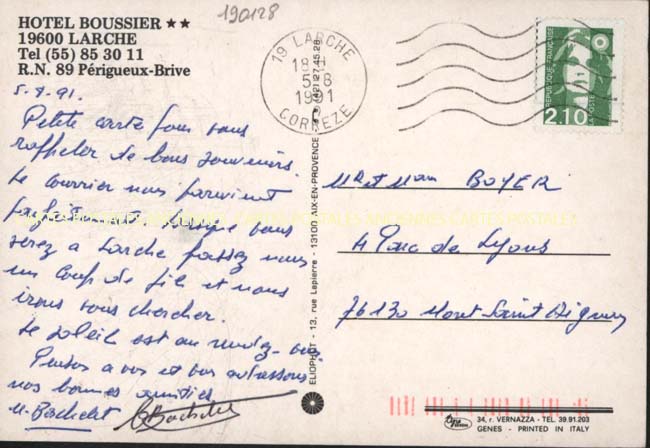 190128
HOTEL BOUSSIER ★★
19600 LARCHE
Tel (55) 85 30 11
R.N. 89 Périgueux-Brive
19 LARCHE
18 H
5-8
1991
CORREZE
REPUBLIQUE FRANÇAISE
2,10
LA POSTE
5.8.91.
Petite carte pour vous
rappeler de bons souvenirs.
Le courrier nous parvient
lorsque vous
serez a Larche passez nous
un coup de fil et nous
irons vous chercher.
Le soleil est au rendez-vous
Pensons a vous et vous adressons
nos bonnes amitiés
M. Bachelet
Mr et Mme BOYER
4 Parc de Lyons
76130 Mont Saint Aignan
CARTES POSTALES ANCIENNES CARTES POSTALES
ELIOPHOT - 13, rue Lapierre - 13100 AIX-EN-PROVENCE - (42) 27.45.28
34, r. VERNAZZA - TEL. 39.91.203
GENES - PRINTED IN ITALY